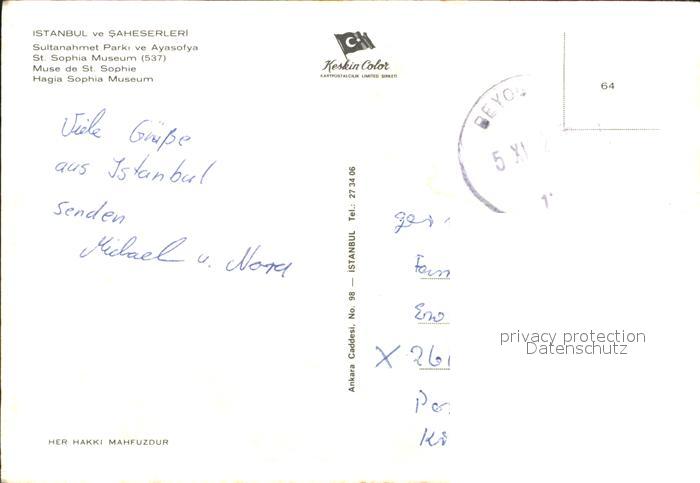 ISTANBUL ve ŞAHESERLERİ
Sultanahmet Parkı ve Ayasofya
St. Sophia Museum (537)
Muse de St. Sophie
Hagia Sophia Museum
Keskin Color
KARTPOSTALCILIK LIMITED ŞİRKETİ
64
BEYOĞ
5 XI
Viele Grüße
aus Istanbul
senden
Michael u. Nora
Ankara Caddesi, No. 98 — İSTANBUL Tel.: 27 34 06
Fam
X 261
privacy protection
Datenschutz
HER HAKKI MAHFUZDUR